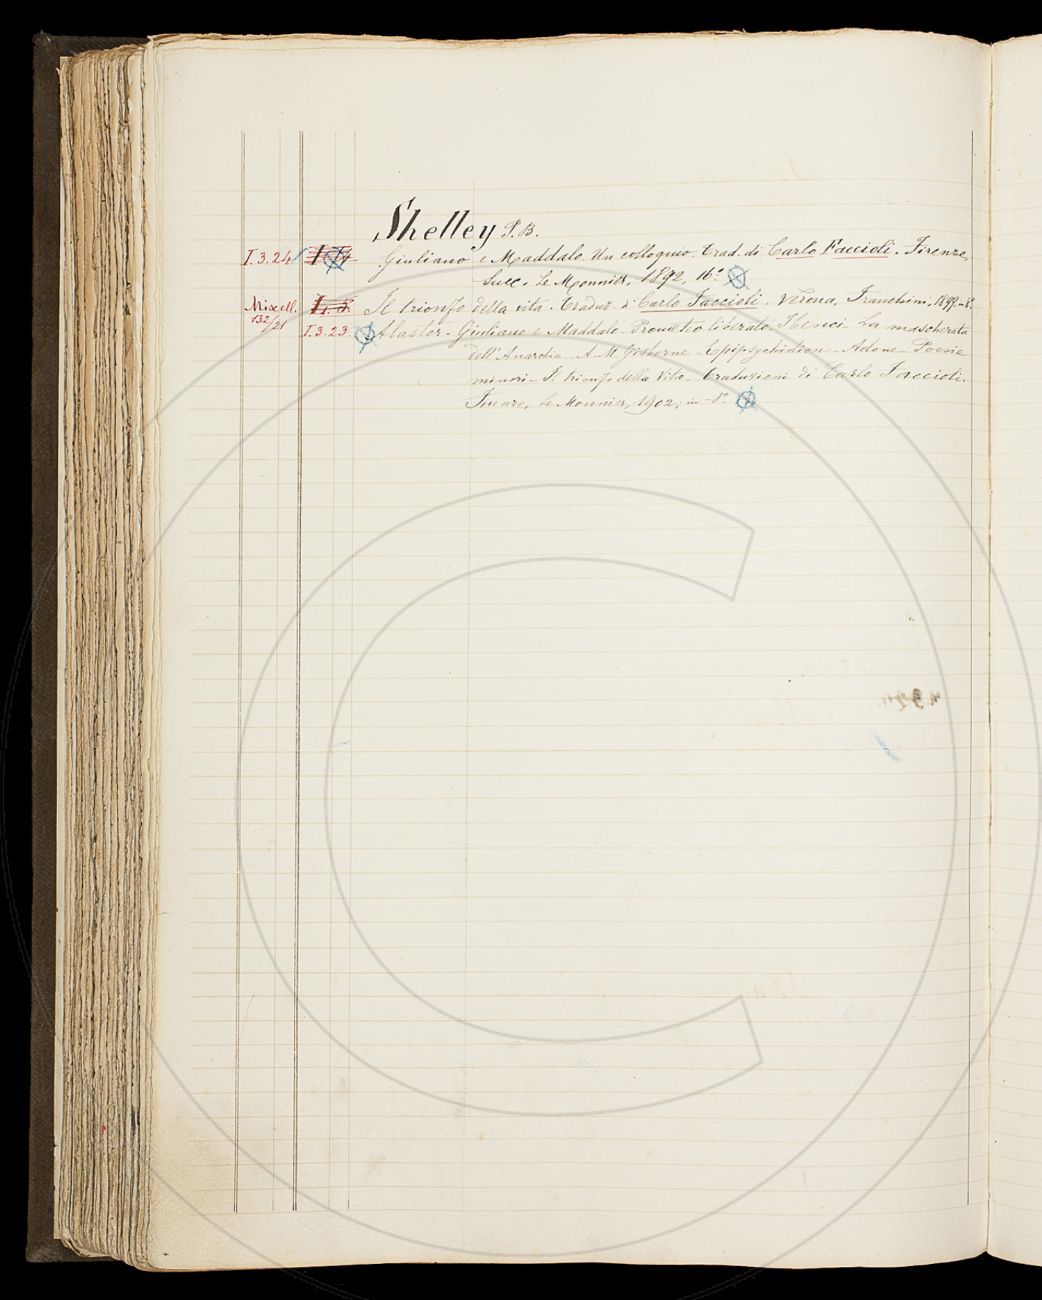 Shelley P. B.
I. 3. 24 Giuliano e Maddalo. Un colloquio. Trad. di Carlo Faccioli. Firenze,
Succ. Le Monnier, 1892, 16.°
Miscell. Il trionfo della vita. Traduz. di Carlo Faccioli. Verona, Franchini,
132/21
I. 3. 23. Alastor - Giuliano e Maddalo - Prometeo liberato. I Cenci - La mascherata
dell'Anarchia - A. M. Gisborne - Epipsychidion - Adone - Poesie
minori - Il trionfo della Vita - Traduzioni di Carlo Faccioli.
Firenze, Le Monnier, 1902; in-8°.